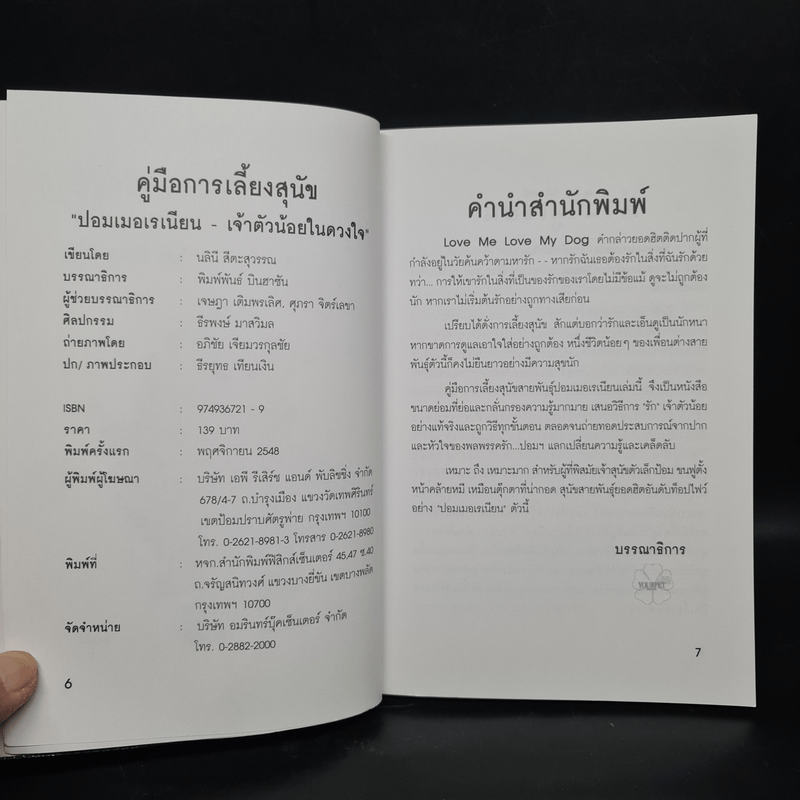 คู่มือการเลี้ยงสุนัข
"ปอมเมอเรเนียน - เจ้าตัวน้อยในดวงใจ"
เขียนโดย : นลินี สีตะสุวรรณ
บรรณาธิการ : พิมพ์พันธ์ บินฮาซัน
ผู้ช่วยบรรณาธิการ : เจษฎา เติมพรเลิศ, ศุภรา จิตร์เลขา
ศิลปกรรม : ธีรพงษ์ มาสวิมล
ถ่ายภาพโดย : อภิชัย เจียมวรกุลชัย
ปก/ ภาพประกอบ : ธีรยุทธ เทียนเงิน
ISBN : 974936721 - 9
ราคา : 139 บาท
พิมพ์ครั้งแรก : พฤศจิกายน 2548
ผู้พิมพ์ผู้โฆษณา : บริษัท เอพี รีเสิร์ช แอนด์ พับลิชชิ่ง จำกัด
678/4-7 ถ.บำรุงเมือง แขวงวัดเทพศิรินทร์
เขตป้อมปราบศัตรูพ่าย กรุงเทพฯ 10100
โทร. 0-2621-8981-3 โทรสาร 0-2621-8980
พิมพ์ที่ : หจก.สำนักพิมพ์ฟิสิกส์เซ็นเตอร์ 45,47 ซ.40
ถ.จรัญสนิทวงศ์ แขวงบางยี่ขัน เขตบางพลัด
กรุงเทพฯ 10700
จัดจำหน่าย : บริษัท อมรินทร์บุ๊คเซ็นเตอร์ จำกัด
โทร. 0-2882-2000
6
คำนำสำนักพิมพ์
Love Me Love My Dog คำกล่าวยอดฮิตติดปากผู้ที่
กำลังอยู่ในวัยค้นคว้าตามหารัก - - หากรักฉันเธอต้องรักในสิ่งที่ฉันรักด้วย
ทว่า... การให้เขารักในสิ่งที่เป็นของรักของเราโดยไม่มีข้อแม้ ดูจะไม่ถูกต้อง
นัก หากเราไม่เริ่มต้นรักอย่างถูกทางเสียก่อน
เปรียบได้ดั่งการเลี้ยงสุนัข สักแต่บอกว่ารักและเอ็นดูเป็นนักหนา
หากขาดการดูแลเอาใจใส่อย่างถูกต้อง หนึ่งชีวิตน้อยๆ ของเพื่อนต่างสาย
พันธุ์ตัวนี้ก็คงไม่ยืนยาวอย่างมีความสุขนัก
คู่มือการเลี้ยงสุนัขสายพันธุ์ปอมเมอเรเนียนเล่มนี้ จึงเป็นหนังสือ
ขนาดย่อมที่ย่อและกลั่นกรองความรู้มากมาย เสนอวิธีการ "รัก" เจ้าตัวน้อย
อย่างแท้จริงและถูกวิธีทุกขั้นตอน ตลอดจนถ่ายทอดประสบการณ์จากปาก
และหัวใจของพลพรรครัก...ปอมฯ แลกเปลี่ยนความรู้และเคล็ดลับ
เหมาะ ถึง เหมาะมาก สำหรับผู้ที่พิสมัยเจ้าสุนัขตัวเล็กป้อม ขนฟูตั้ง
หน้าคล้ายหมี เหมือนตุ๊กตาที่น่ากอด สุนัขสายพันธุ์ยอดฮิตอันดับท็อปไฟว์
อย่าง "ปอมเมอเรเนียน" ตัวนี้
บรรณาธิการ
YOURPET
7